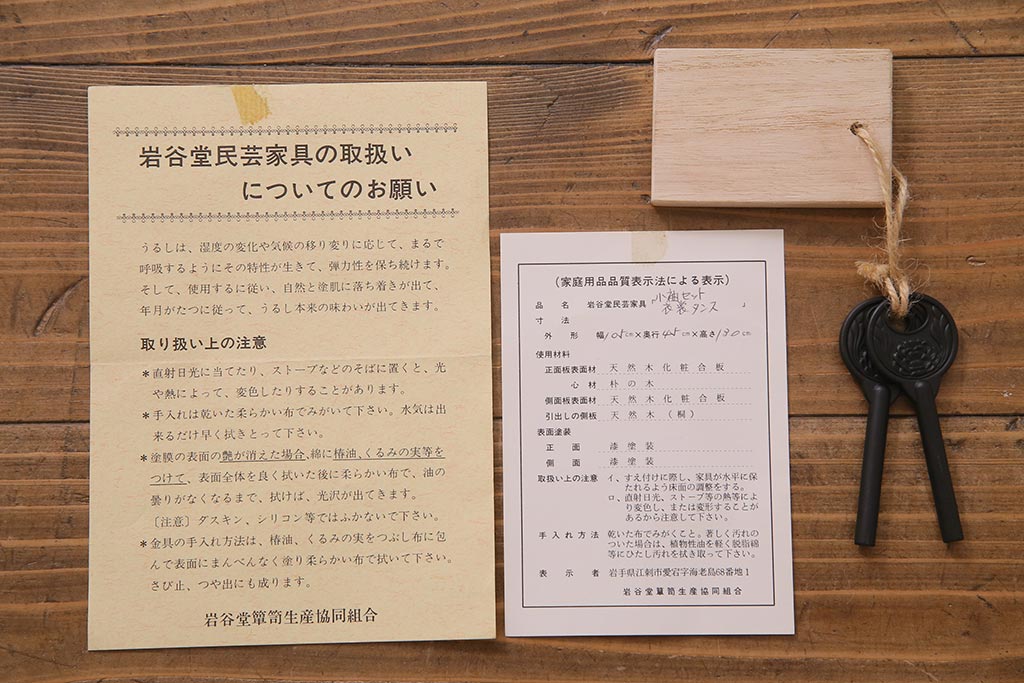 岩谷堂民芸家具の取扱い
についてのお願い
うるしは、湿度の変化や気候の移り変りに応じて、まるで
呼吸するようにその特性が生きて、弾力性を保ち続けます。
そして、使用するに従い、自然と塗肌に落ち着きが出て、
年月がたつに従って、うるし本来の味わいが出てきます。
取り扱い上の注意
＊直射日光に当てたり、ストーブなどのそばに置くと、光
や熱によって、変色したりすることがあります。
＊手入れは乾いた柔らかい布でみがいて下さい。水気は出
来るだけ早く拭きとって下さい。
＊塗膜の表面の艶が消えた場合、綿に椿油、くるみの実等を
つけて、表面全体を良く拭いた後に柔らかい布で、油の
曇りがなくなるまで、拭けば、光沢が出てきます。
〔注意〕ダスキン、シリコン等ではふかないで下さい。
＊金具の手入れ方法は、椿油、くるみの実をつぶし布に包
んで表面にまんべんなく塗り柔らかい布で拭いて下さい。
さび止、つや出にも成ります。
岩谷堂簞笥生産協同組合
（家庭用品品質表示法による表示）
品名 岩谷堂民芸家具「小袖セット
衣裳タンス」
寸法
外形 幅105cm×奥行45cm×高さ130cm
使用材料
正面板表面材 天然木化粧合板
心材 朴の木
側面板表面材 天然木化粧合板
引出しの側板 天然木（桐）
表面塗装
正面 漆塗装
側面 漆塗装
取扱い上の注意 イ、すえ付けに際し、家具が水平に保
たれるよう床面の調整をする。
ロ、直射日光、ストーブ等の熱等によ
り変色し、または変形することが
あるから注意して下さい。
手入れ方法 乾いた布でみがくこと。著しく汚れの
ついた場合は、植物性油を軽く脱脂綿
等にひたし汚れを拭き取って下さい。
表示者 岩手県江刺市愛宕字海老島68番地1
岩谷堂簞笥生産協同組合